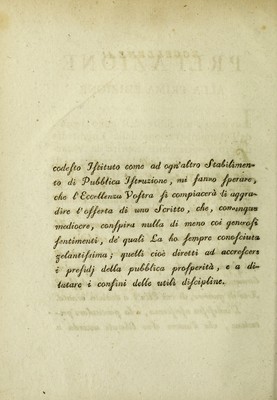 codeſto Iſtituto come ad ogn'altro Stabilimen-
to di Pubblica Iſtruzione, mi fanno ſperare,
che l'Eccellenza Voſtra ſi compiacerà di aggra-
dire l'offerta di uno Scritto, che, comunque
mediocre, conſpira nulla di meno coi generoſi
ſentimenti, de' quali La ho ſempre conoſciuta
zelantiſſima; quelli cioè diretti ad accreſcere
i preſidj della pubblica proſperità, e a di-
latare i confini delle utili diſcipline.